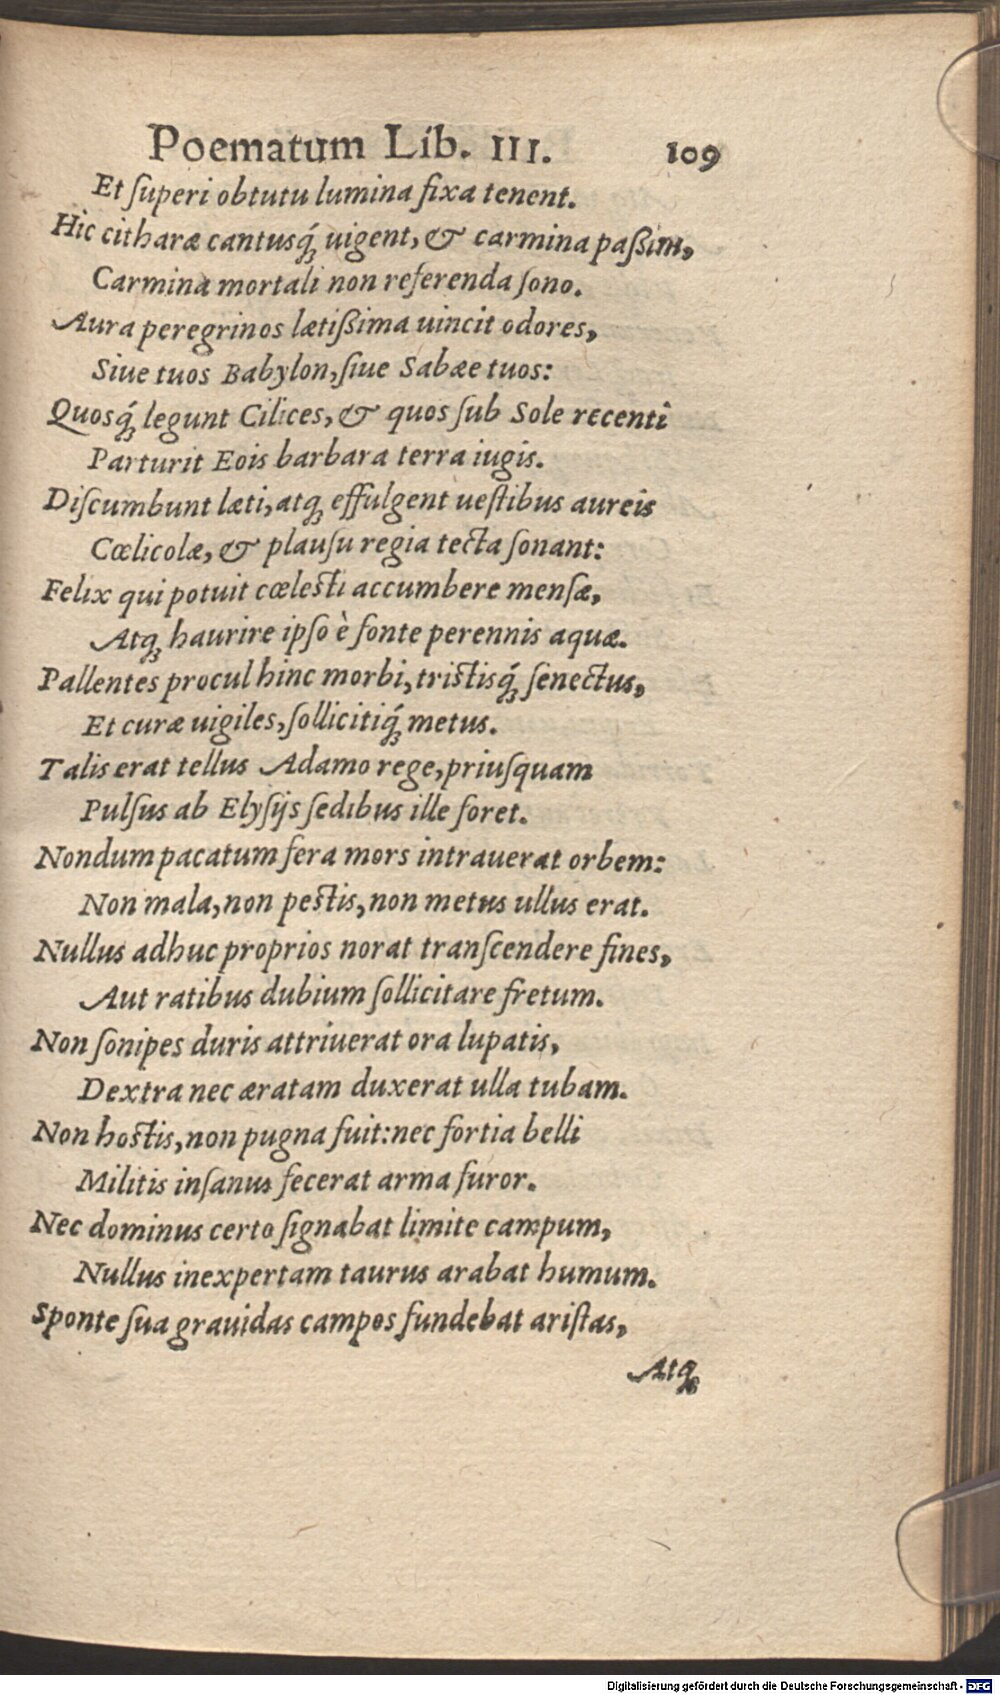 Poematum Lib. III. 109
Et ſuperi obtutu lumina fixa tenent.
Hic citharæ cantusq́; uigent, & carmina paßim,
Carmina mortali non referenda ſono.
Aura peregrinos lætißima uincit odores,
Siue tuos Babylon, ſiue Sabæe tuos:
Quosq́; legunt Cilices, & quos ſub Sole recenti
Parturit Eois barbara terra iugis.
Diſcumbunt læti, atq; effulgent ueſtibus aureis
Cœlicolæ, & plauſu regia tecta ſonant:
Felix qui potuit cœleſti accumbere menſæ,
Atq; haurire ipſo è fonte perennis aquæ.
Pallentes procul hinc morbi, triſtisq́; ſenectus,
Et curæ uigiles, ſollicitiq́; metus.
Talis erat tellus Adamo rege, priuſquam
Pulſus ab Elyſijs ſedibus ille foret.
Nondum pacatum fera mors intrauerat orbem:
Non mala, non peſtis, non metus ullus erat.
Nullus adhuc proprios norat tranſcendere fines,
Aut ratibus dubium ſollicitare fretum.
Non ſonipes duris attriuerat ora lupatis,
Dextra nec æratam duxerat ulla tubam.
Non hoſtis, non pugna fuit: nec fortia belli
Militis inſanus fecerat arma furor.
Nec dominus certo ſignabat limite campum,
Nullus inexpertam taurus arabat humum.
Sponte ſua grauidas campos fundebat ariſtas,
Atq;
Digitalisierung gefördert durch die Deutsche Forschungsgemeinschaft - DFG